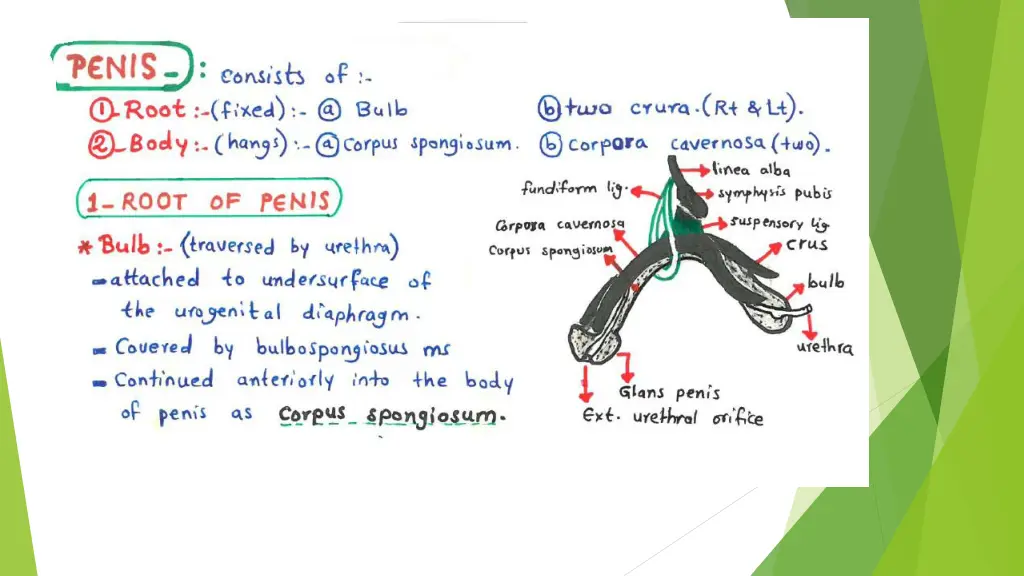 PENIS_ : consists of :-
①_Root :-(fixed):- ⓐ Bulb ⓑ two crura.(Rt & Lt).
②_Body :- (hangs) :- ⓐ Corpus spongiosum. ⓑ corpora cavernosa (two).
1- ROOT OF PENIS
* Bulb :- (traversed by urethra)
- attached to undersurface of
the urogenital diaphragm.
- Covered by bulbospongiosus ms
- Continued anteriorly into the body
of penis as Corpus spongiosum.
linea alba
fundiform lig.
symphysis pubis
suspensory lig
Corpora cavernosa
crus
Corpus spongiosum
bulb
urethra
Glans penis
Ext. urethral orifice